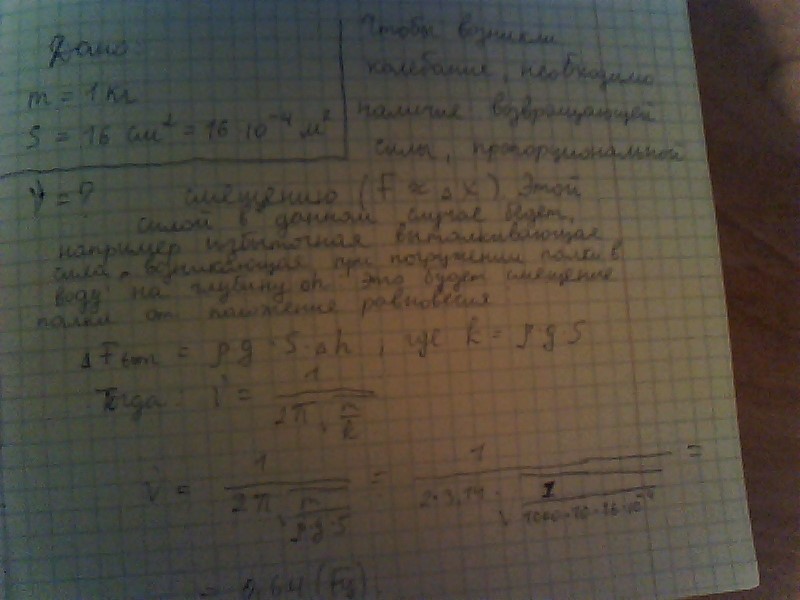 Дано:
m = 1 кг
S = 16 см² = 16 · 10⁻⁴ м²
ν = ?
Чтобы возникли
колебание, необходимо
наличие возвращающей
силы, пропорциональной
смещению (F ∝ Δx). Этой
силой в данном случае будет,
например избыточная выталкивающая
сила, возникающая при погружении палки в
воду на глубину Δh это будет смещение
палки от положение равновесия
ΔFвыт = ρg · S · Δh, где k = ρgS
Тогда: ν = 1 / (2π √(m/k))
ν = 1 / (2π √(m/(ρ·g·S))) = 1 / (2·3,14 · √(1/(1000·10·16·10⁻⁴))) =
= 0,64 (Гц)